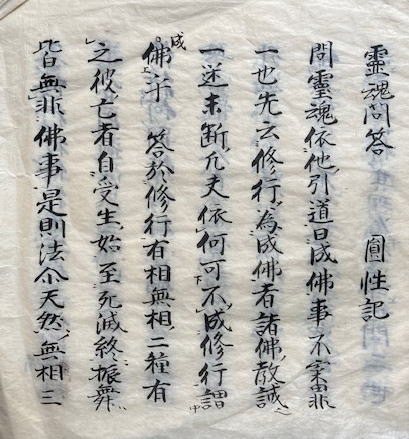 靈魂問答 圓性記
問靈魂依他引道曰成佛事不審非
一也先云修行為成佛者諸佛教誡
一迷未断凡夫依何可不成修行謂
成佛乎 答於修行有相無相二種有
之彼亡者自受生始至死滅終振舞
皆無非佛事是則法尒天然無相三